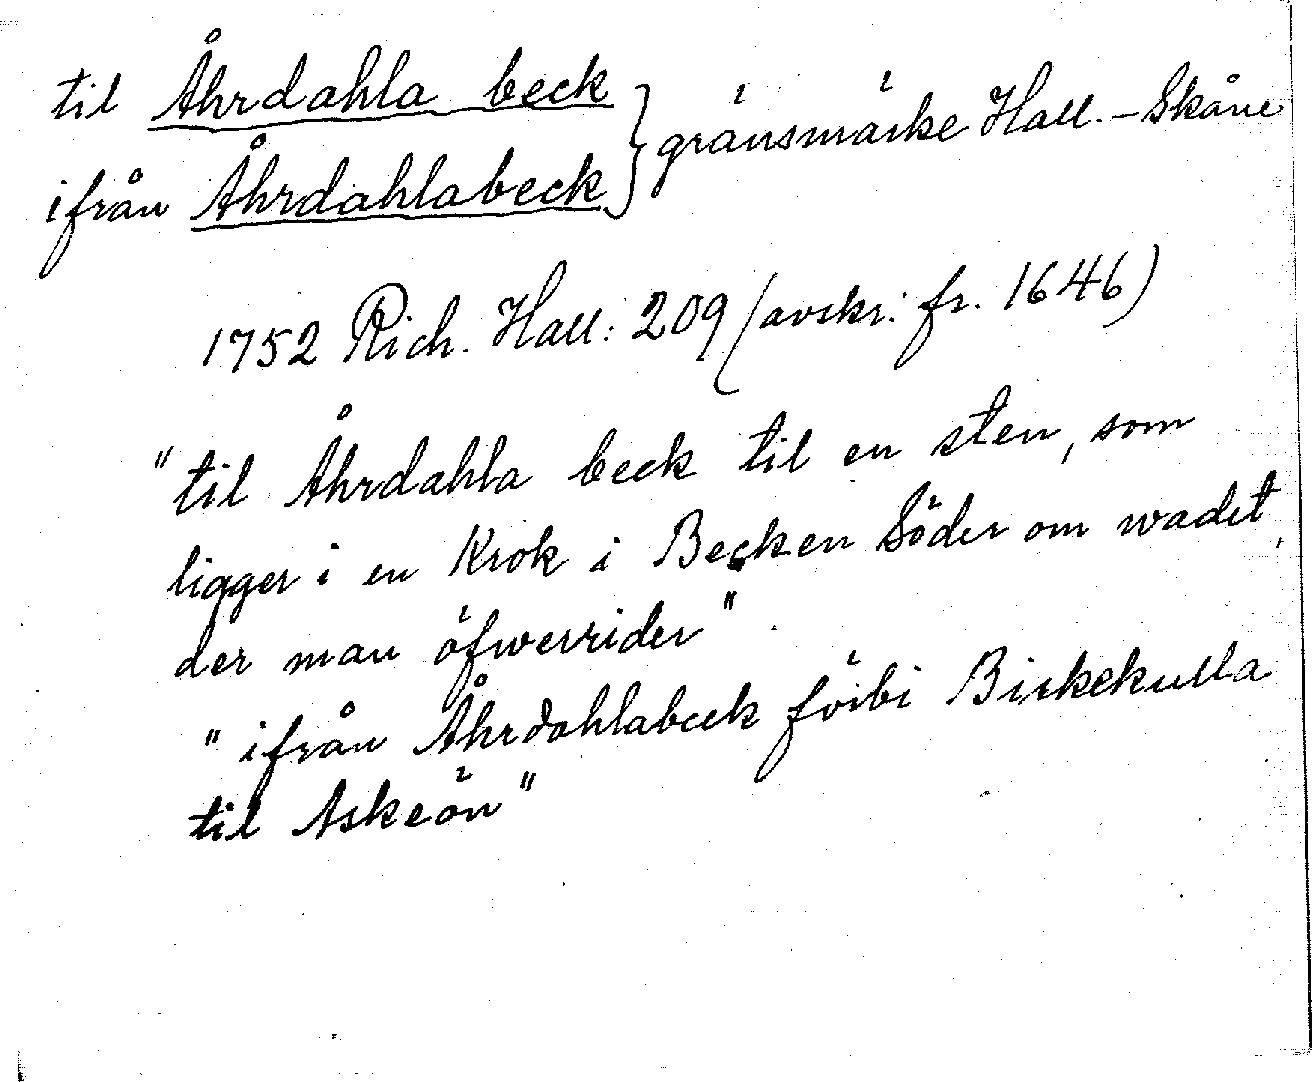 til Åhrdahla beck } gränsmärke Hall. - Skåne
ifrån Åhrdahlabeck
1752 Rich. Hall: 209 (avskr. fr. 1646)
"til Åhrdahla beck til en sten, som
ligger i en Krok i Becken Söder om wadet,
der man öfwerrider"
"ifrån Åhrdahlabeck förbi Birkekulla
til Askeön"